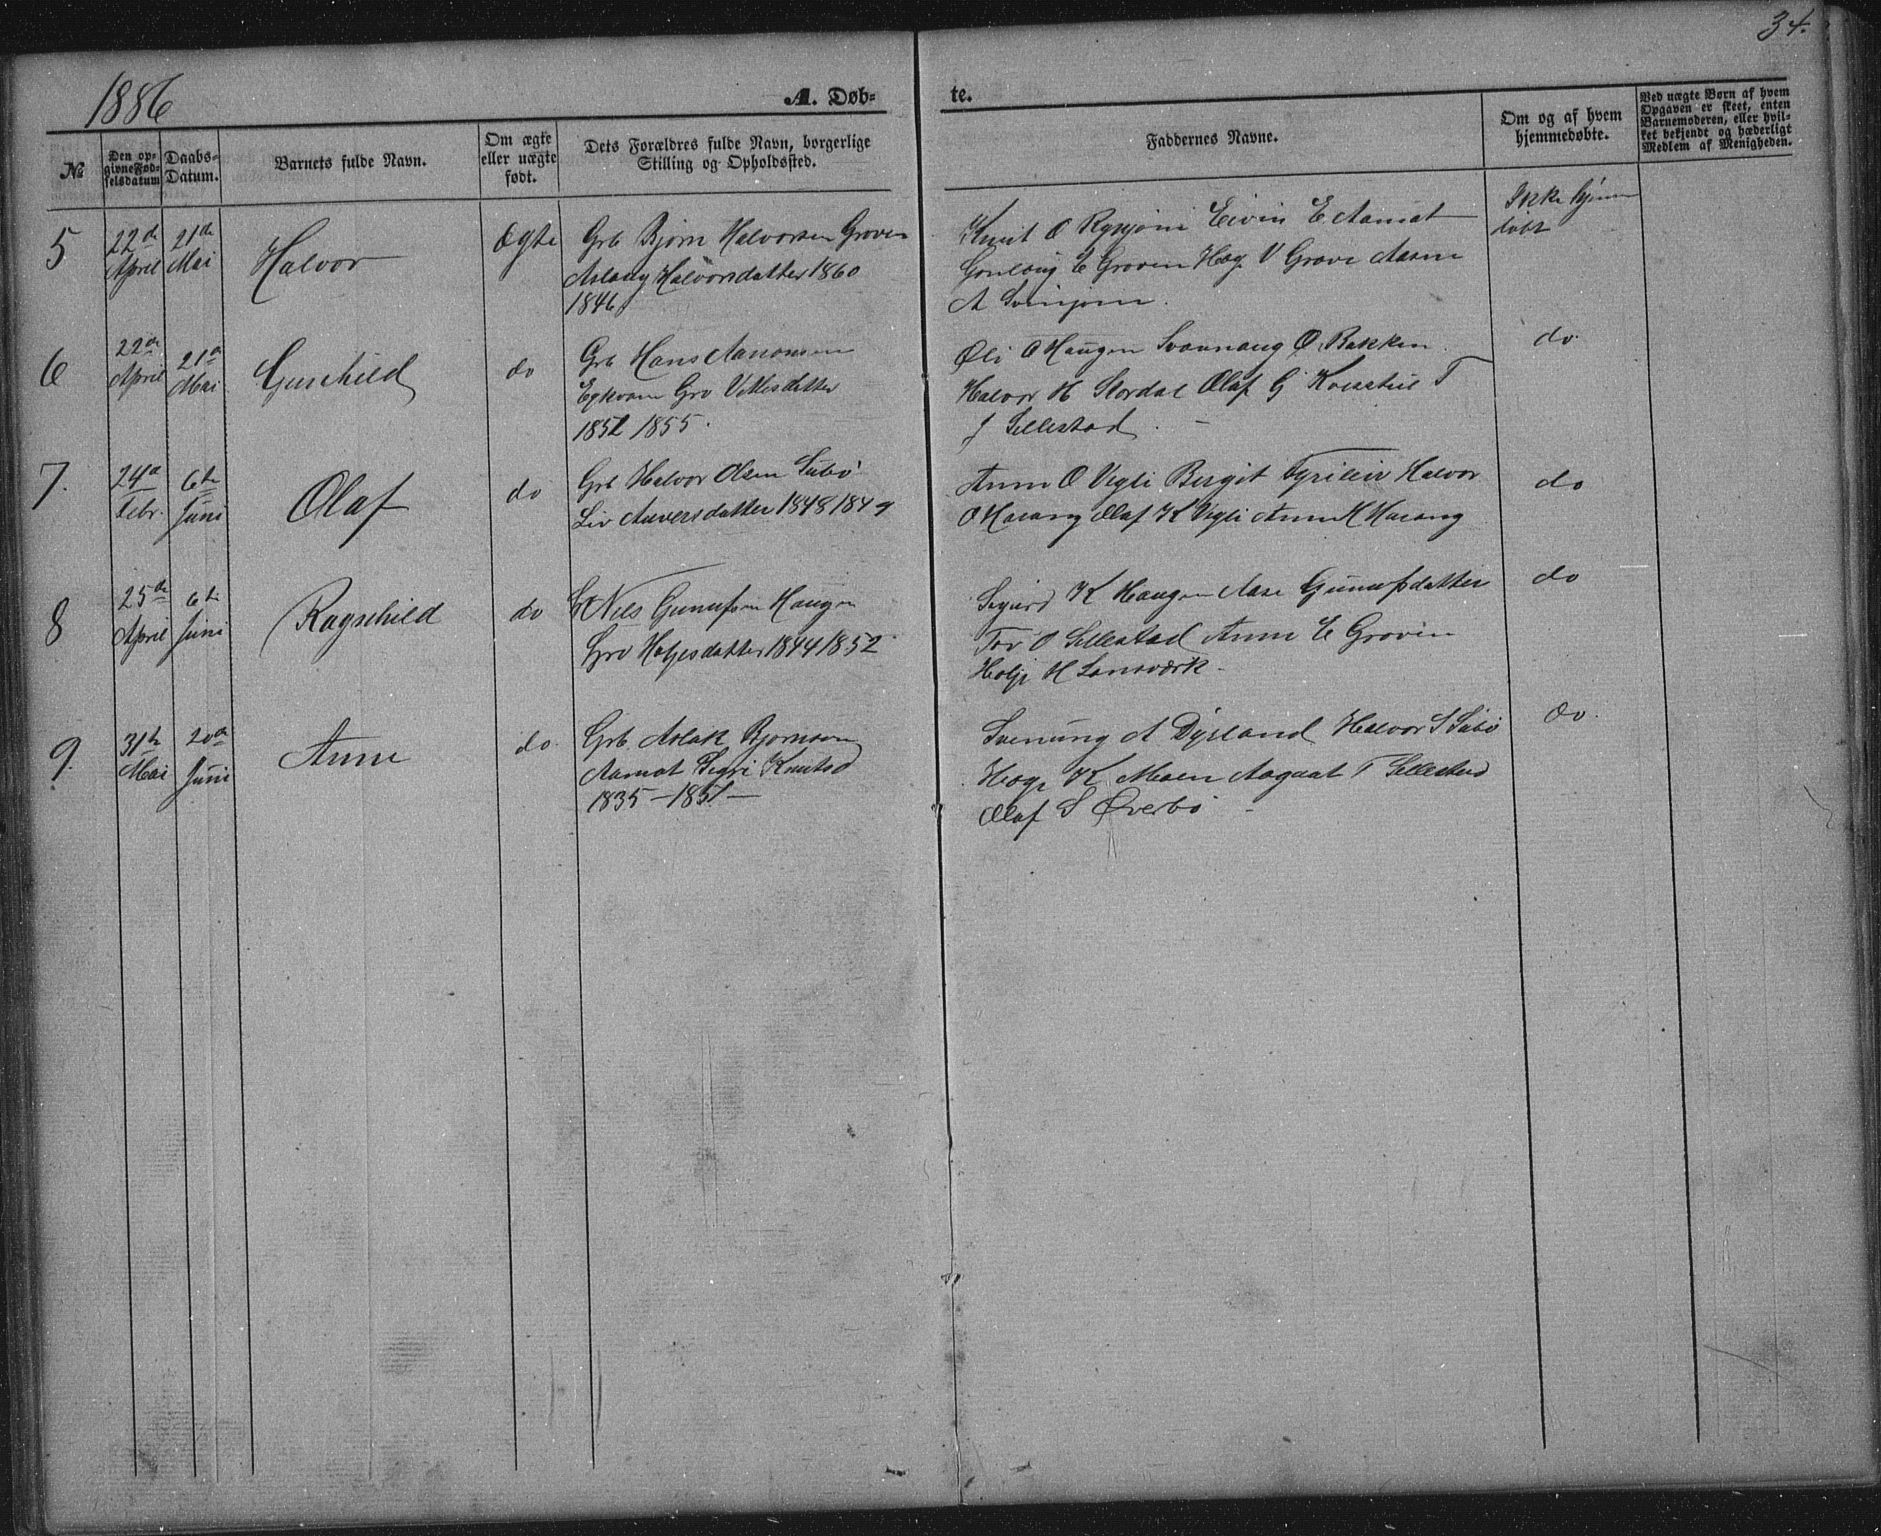 34.
1886
A. Døb-
te.
№
Den op-
givne Fød-
selsdatum
Daabs-
Datum.
Barnets fulde Navn.
Om ægte
eller uægte
født.
Dets Forældres fulde Navn, borgerlige
Stilling og Opholdssted.
Faddernes Navne.
Om og af hvem
hjemmedøbte.
Ved uægte Børn af hvem
Opgaven er skeet, enten
Barnemoderen, eller hvil-
ket bekjendt og hæderligt
Medlem af Menigheden.
5
22de
April
21de
Mai
Halvor
Ægte
Grb Bjørn Halvorsen Groven
Aslaug Halvorsdatter 1860
1846
Knut O Eivin E Aamot
E Groven V Grove
A
Ikke
6
22de
April
21de
Mai
Gunhild
do
Grb Hans Aanonsen
Gro
1852 1855.
Oli O Haugen Svanaug O. Bakken
Halvor H Stordal Olaf G T
J Sellestad
do.
7.
24de
Febr.
6te
Juni
Olaf
do
Grb Halvor Olsen Subø
Liv Anversdatter 1848 1849
Anne O Vegli Bergit Halvor
O Olaf K Vegli Anne H
do
8
25de
April
6te
Juni
Ragnhild
do
Nils Gunufsen Haugen
Gro Holjesdatter 1844 1852
Sigurd K Haugen Aase Gunufsdatter
Tov O Sellestad Anne E Groven
Holje H Lonsværk
do
9.
31te
Mai
20de
Juni
Anne
do.
Grb Aslak Bjørnson
Aamot Sigri Knutsd
1835 – 1851 –
Svenung A Dyrland Halvor S Subø
K Moen Aagaat T Sellestad
Olaf S Øverbø –
do.